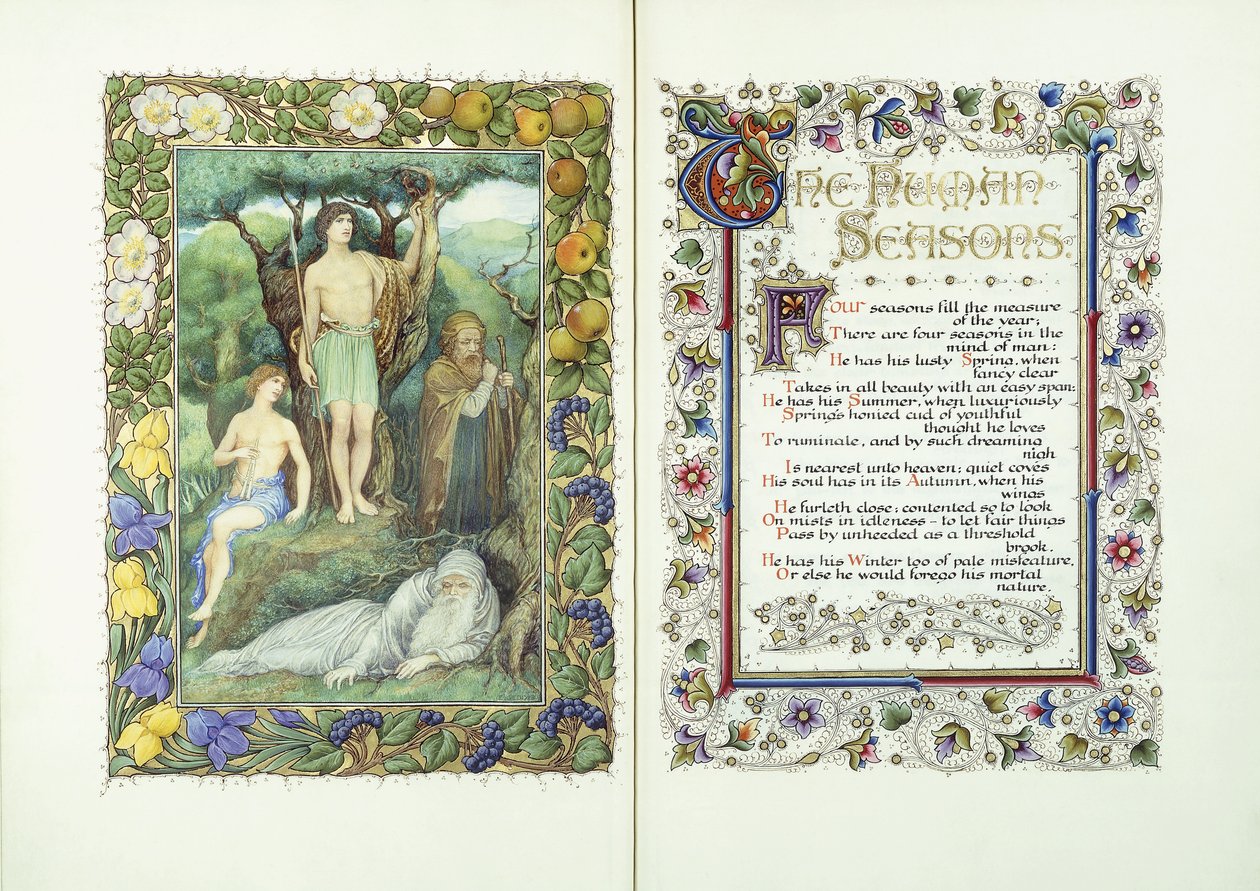 The Human
Seasons.
Four seasons fill the measure
of the year;
There are four seasons in the
mind of man:
He has his lusty Spring, when
fancy clear
Takes in all beauty with an easy span:
He has his Summer, when luxuriously
Spring's honied cud of youthful
thought he loves
To ruminate, and by such dreaming
nigh
Is nearest unto heaven: quiet coves
His soul has in its Autumn, when his
wings
He furleth close; contented so to look
On mists in idleness - to let fair things
Pass by unheeded as a threshold
brook.
He has his Winter too of pale misfeature,
Or else he would forego his mortal
nature.